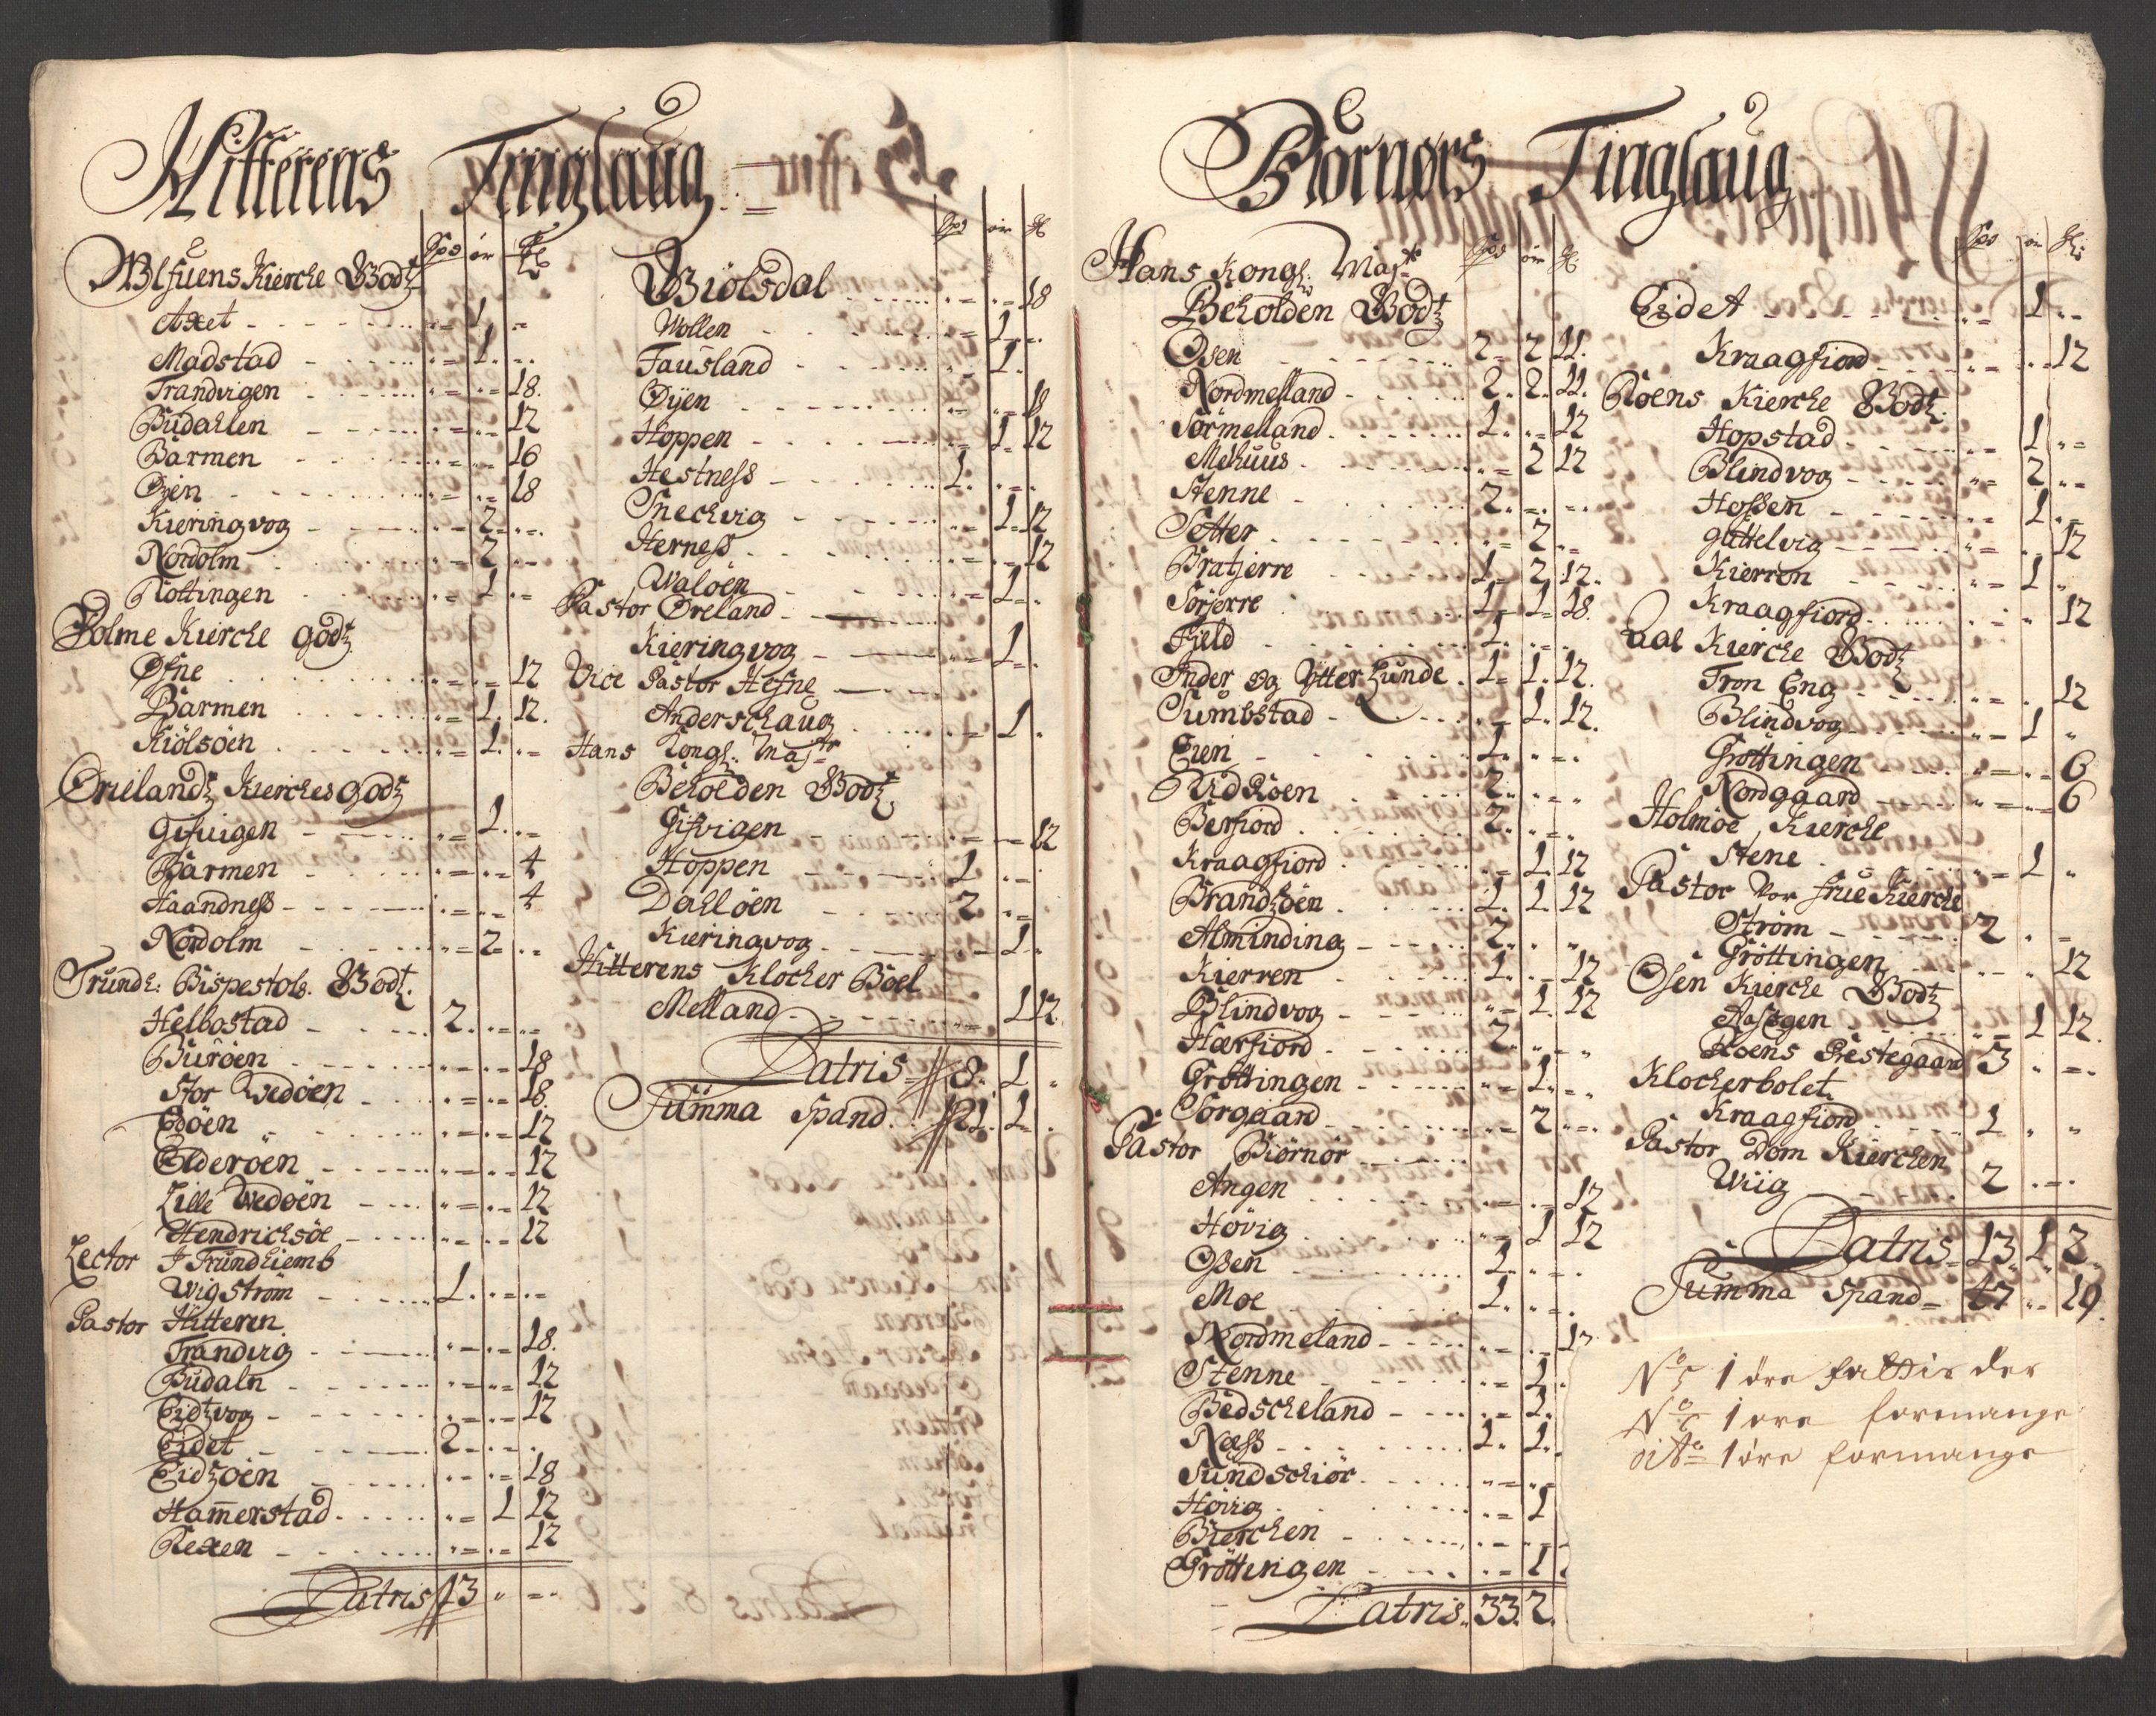 Hitterens Tinglaug
Spd ör
Ulfuens Kierche Godtz
Axet - - 1 -
Madstad - 1 -
Trandvigen - - 18
Büdahlen - - 12
Barmen - - 16
Öyen - - 18
Kieringvog - 2 -
Nordolm - 2 -
Rottingen - 1 -
Holme Kierche godtz
Öfne - - 12
Barmen - 1 12
Kiölsöen - 1 -
Örelandtz Kierches godtz
Gifuigen - 1 -
Barmen - - 4
Haandness - - 4
Nordolm - 2 -
Trundh: Bispestols Godtz
Helbostad 2 - -
Buröen - - 18
Stor Wedöen - - 18
Edöen - - 12
Elderöen - - 12
Lille Wedöen - - 12
Hendrichsöe - - 12
Lector I Trundhiemb
Wigström 1 - -
Pastor Hitteren
Trandvig - - 18
Büdaln - - 12
Eidtzvog - - 12
Eidet 2 - -
Eidtzöen - - 18
Hamerstad - 1 12
Rexen - - 12
Latris 13 - -
Spd ör
Giölsdal - - 18
Wollen - 1 -
Fausland - 1 -
Öyen - - 18
Hoppen - 1 12
Hestness 1 - -
Snechvig - 1 12
Herness - - 12
Waloen - 1 -
Pastor Öreland
Kieringvog - 1 -
Vice Pastor Hefne
Anderschaug - 1 -
Hans Kongl: Maytz
Beholden Godtz
Gifvigen - - 12
Hoppen 1 - -
Dahlöen 2 - -
Kieringvog - 1 -
Hitterens Klocher Boel
Melland - 1 12
Latris 8 1 -
Summa Spand 21 1 -
Biörnörs Tinglaug
Hans Kongl: Maytz Spd ör
Beholden Godtz
Osen 2 2 21
Nordmelland 2 2 21
Sörmelland 1 - 12
Mehuus - 2 12
Stenne 2 - -
Setter - 2 -
Bratjerre 1 2 12
Sörjerre 1 1 18
Field 1 - -
Inder og Ytter Hunde 1 1 12
Sumbstad - 1 12
Eien 1 - -
Berfiord 2 - -
Kraagfiord - 1 12
Brandtzöen 1 1 12
Alminding 2 - -
Kierren 1 - 12
Blindvog - 1 12
Hærfiord 2 - -
Gröttingen - 1 -
Sörgaard - 2 -
Pastor Biörnör
Angen - - 12
Hövig - 1 12
Ossen 1 - -
Moe 1 - -
Nordmeland - - 12
Stenne - 1
Bedscheland - 2
Næss 1 1
Sundschiör - -
Höivig - 1
Bierchen - -
Gröttingen - 1
Latris 33 2
Spd ör
Eidet - 1 -
Kraagfiord - - 12
Roens Kierche Godtz
Hopstad - 1 -
Blindvog - 2 -
Hossen - 1 -
Guttelvig - - 12
Kierren - 1 -
Kraagfiord - - 12
Aal Kierche Godtz
Tron Eng - - 12
Blindvog - 1 -
Gröttingen - - 6
Nordgaard - - 6
Holmöe Kierche
Stene - 1 -
Pastor Vor frue Kierche
Ström 2 - -
Gröttingen - - 12
Osen Kierche Godtz
Aasegen - 1 12
Roens Prestegaard 3 - -
Klocherbolet
Kraagfiord 1 - -
Pastor Dom Kierchen
Wiig 2 - -
Latris 13 1 3
Summa Spand 47 - 19
No 5 1 öre feldis der
No 6 1 öre formange
dito 1 öre formange